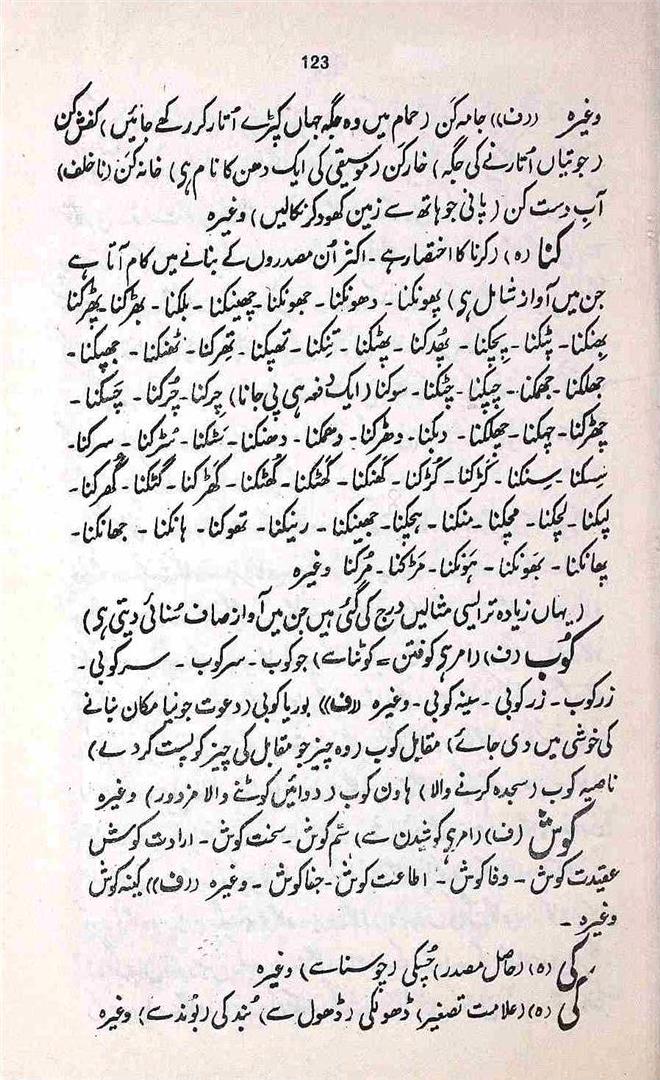 123
وغیرہ ((ف)) جامہ کَن (حمام میں وہ جگہ جہاں کپڑے اُتار کر رکھے جائیں) کفش کن
(جوتیاں اُتارنے کی جگہ) خارکَن (موسیقی کی ایک دھن کا نام ہی) خانہ کَن (ناخلف)
آبِ دست کن (پانی جو ہاتھ سے زمین کھود کر نکالیں) وغیرہ
کنا (ہ) (کرنا کا اختصار ہے ۔ اکثر اُن مصدروں کے بنانے میں کام آتا ہے
جن میں آواز شامل ہی) پھونکنا ۔ دھونکنا ۔ جھونکنا ۔ چھینکنا ۔ بلکنا ۔ بھڑکنا ۔ پھڑکنا
بھنکنا ۔ پٹکنا ۔ پچکنا ۔ پھُدکنا ۔ پھٹکنا ۔ تنکنا ۔ تھپکنا ۔ تھرکنا ۔ ٹھنکنا ۔ جھپکنا ۔
جھلکنا ۔ جھمکنا ۔ چپکنا ۔ چٹکنا ۔ سوکنا (ایک دفعہ ہی پی جانا) چرکنا ۔ چُرکنا ۔ چسکنا ۔
چھڑکنا ۔ چہکنا ۔ چھلکنا ۔ دبکنا ۔ دھڑکنا ۔ دھمکنا ۔ دھنکنا ۔ سٹکنا ۔ سُڑکنا ۔ سرکنا ۔
سِسکنا ۔ سنکنا ۔ کُڑکنا ۔ کَڑکنا ۔ کھنکنا ۔ کھٹکنا ۔ کھُٹکنا ۔ کھڑکنا ۔ گٹکنا ۔ گھُرکنا ۔
لپکنا ۔ لچکنا ۔ مچکنا ۔ منکنا ۔ ہچکنا ۔ جھینکنا ۔ رینکنا ۔ تھوکنا ۔ ہانکنا ۔ جھانکنا ۔
پھانکنا ۔ بھونکنا ۔ ہَونکنا ۔ مَڑکنا ۔ مُرکنا وغیرہ
(یہاں زیادہ تر ایسی مثالیں درج کی گئی ہیں جن میں آواز صاف سُنائی دیتی ہی)
کُوب (ف) (امر ہی کوفتن = کوٹنا سے) جوکوب ۔ سرکوب ۔ سرکوبی ۔
زرکوب ۔ زرکوبی ۔ سینہ کوبی ۔ وغیرہ ((ف)) بوریا کوبی (دعوت جو نیا مکان بنانے
کی خوشی میں دی جائے) مقابل کوب (وہ چیز جو مقابل کی چیز کو پست کر دے)
ناصیہ کوب (سجدہ کرنے والا) ہاون کوب (دوائیں کوٹنے والا مزدور) وغیرہ
کوش (ف) (امر ہی کوشیدن سے) ستم کوش ۔ سخت کوش ۔ ارادت کوش
عقیدت کوش ۔ وفا کوش ۔ اطاعت کوش ۔ جفا کوش ۔ وغیرہ ((ف)) کینہ کوش
وغیرہ ۔
کی (ہ) (حاصل مصدر) چُسکی (چوسنا سے) وغیرہ
کی (ہ) (علامت تصغیر) ڈھولکی (ڈھول سے) بُندکی (بوند سے) وغیرہ